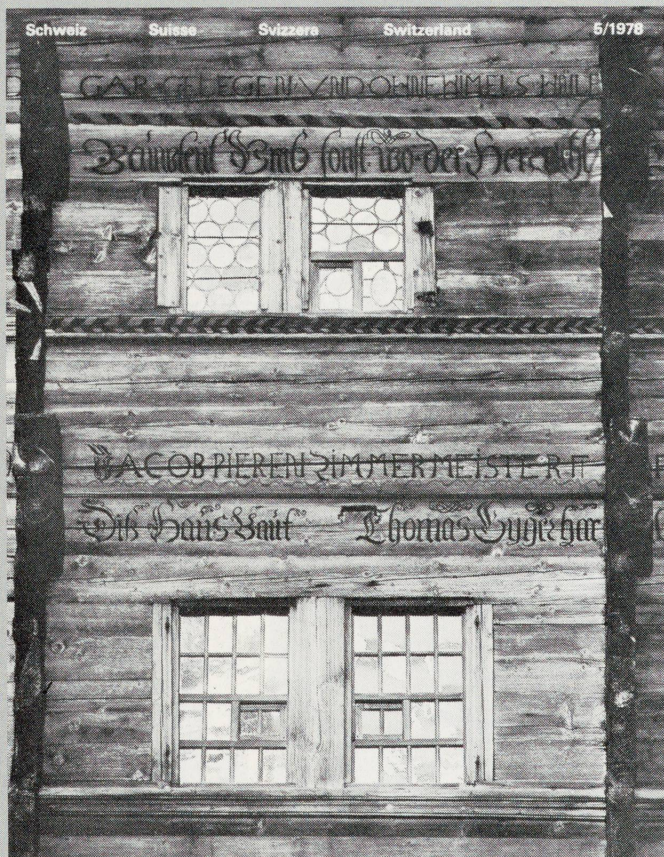 Schweiz Suisse Svizzera Switzerland 5/1978
GAR GELEGEN VND OHNE HIMELS HÜLF
Vmb sonst wo der Herr
JACOB PIEREN ZIMMERMEISTER
Diß Haus Baut Thomas Gyger